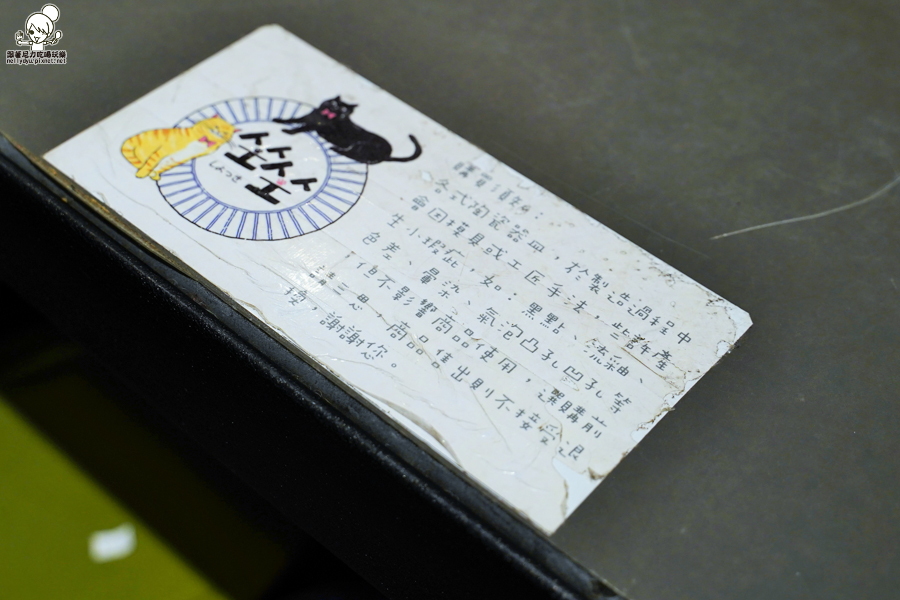 跟著尼力吃喝玩樂
nellydyu.pixnet.net
しんつき
購買須知：
各式陶瓷器皿，於製造過程中
會因模具或工匠手法，些許產
生小瑕疵，如：黑點、流釉、
色差、暈染、氣泡凸孔凹孔等
，但不影響商品使用，選購前
請三思，商品售出則不接受退
換，謝謝您。